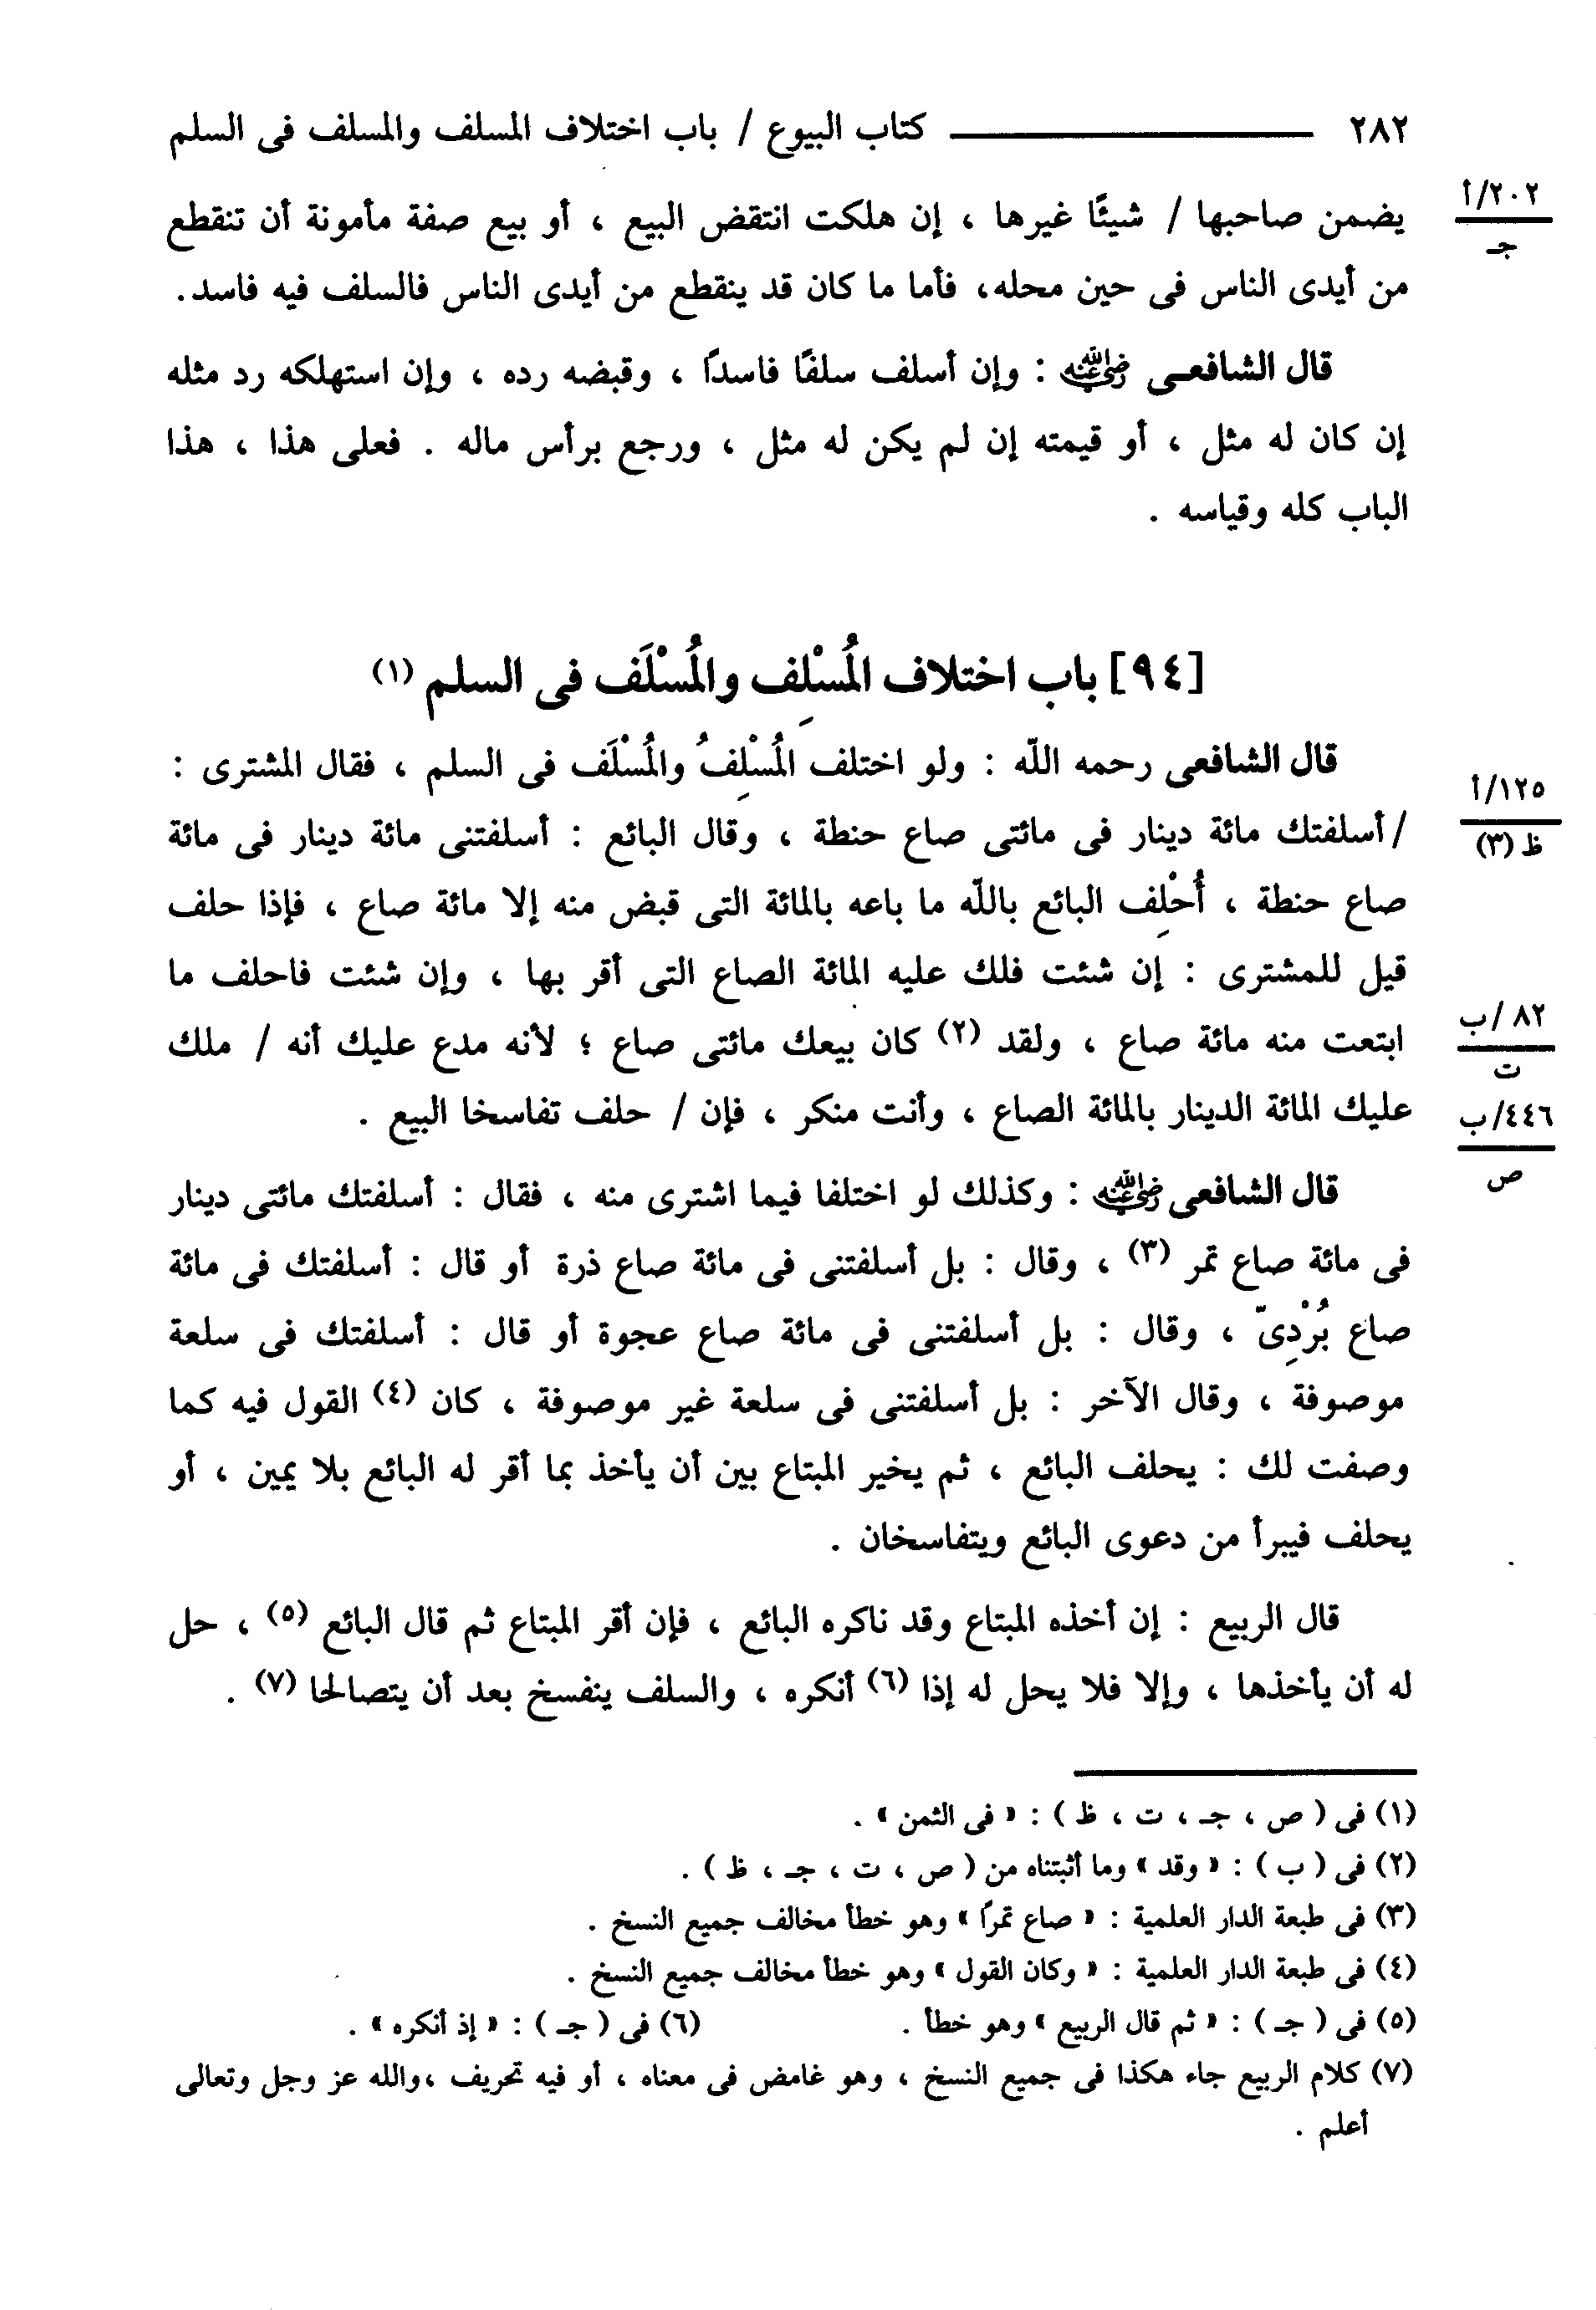 ٢٨٢ ـــــــــــــ كتاب البيوع / باب اختلاف المسلف والمسلف فى السلم
٢٠٢/أ
جـ
يضمن صاحبها / شيئًا غيرها ، إن هلكت انتقض البيع ، أو بيع صفة مأمونة أن تنقطع
من أيدى الناس فى حين محله، فأما ما كان قد ينقطع من أيدى الناس فالسلف فيه فاسد.
قال الشافعى رضي الله عنه : وإن أسلف سلفًا فاسدًا ، وقبضه رده ، وإن استهلكه رد مثله
إن كان له مثل ، أو قيمته إن لم يكن له مثل ، ورجع برأس ماله . فعلى هذا ، هذا
الباب كله وقياسه .
[٩٤] باب اختلاف المُسْلِف والمُسْلَف فى السلم (١)
قال الشافعى رحمه اللّه : ولو اختلف المُسْلِفُ والمُسْلَف فى السلم ، فقال المشترى :
١٢٥/أ
ظ (٣)
/ أسلفتك مائة دينار فى مائتى صاع حنطة ، وقال البائع : أسلفتنى مائة دينار فى مائة
صاع حنطة ، أُحْلِف البائع باللّه ما باعه بالمائة التى قبض منه إلا مائة صاع ، فإذا حلف
قيل للمشترى : إن شئت فلك عليه المائة الصاع التى أقر بها ، وإن شئت فاحلف ما
٨٢/ب
ت
ابتعت منه مائة صاع ، ولقد (٢) كان بيعك مائتى صاع ؛ لأنه مدع عليك أنه / ملك
٤٤٦/ب
ص
عليك المائة الدينار بالمائة الصاع ، وأنت منكر ، فإن / حلف تفاسخا البيع .
قال الشافعى رضي الله عنه : وكذلك لو اختلفا فيما اشترى منه ، فقال : أسلفتك مائتى دينار
فى مائة صاع تمر (٣) ، وقال : بل أسلفتنى فى مائة صاع ذرة أو قال : أسلفتك فى مائة
صاع بُرْدِىّ ، وقال : بل أسلفتنى فى مائة صاع عجوة أو قال : أسلفتك فى سلعة
موصوفة ، وقال الآخر : بل أسلفتنى فى سلعة غير موصوفة ، كان (٤) القول فيه كما
وصفت لك : يحلف البائع ، ثم يخير المبتاع بين أن يأخذ بما أقر له البائع بلا يمين ، أو
يحلف فيبرأ من دعوى البائع ويتفاسخان .
قال الربيع : إن أخذه المبتاع وقد ناكره البائع ، فإن أقر المبتاع ثم قال البائع (٥) ، حل
له أن يأخذها ، وإلا فلا يحل له إذا (٦) أنكره ، والسلف ينفسخ بعد أن يتصالحا (٧) .
(١) فى ( ص ، جـ ، ت ، ظ ) : « فى الثمن » .
(٢) فى ( ب ) : « وقد » وما أثبتناه من ( ص ، ت ، جـ ، ظ ) .
(٣) فى طبعة الدار العلمية : « صاع تمرًا » وهو خطأ مخالف جميع النسخ .
(٤) فى طبعة الدار العلمية : « وكان القول » وهو خطأ مخالف جميع النسخ .
(٥) فى ( جـ ) : « ثم قال الربيع » وهو خطأ . (٦) فى ( جـ ) : « إذ أنكره » .
(٧) كلام الربيع جاء هكذا فى جميع النسخ ، وهو غامض فى معناه ، أو فيه تحريف ،والله عز وجل وتعالى
أعلم .